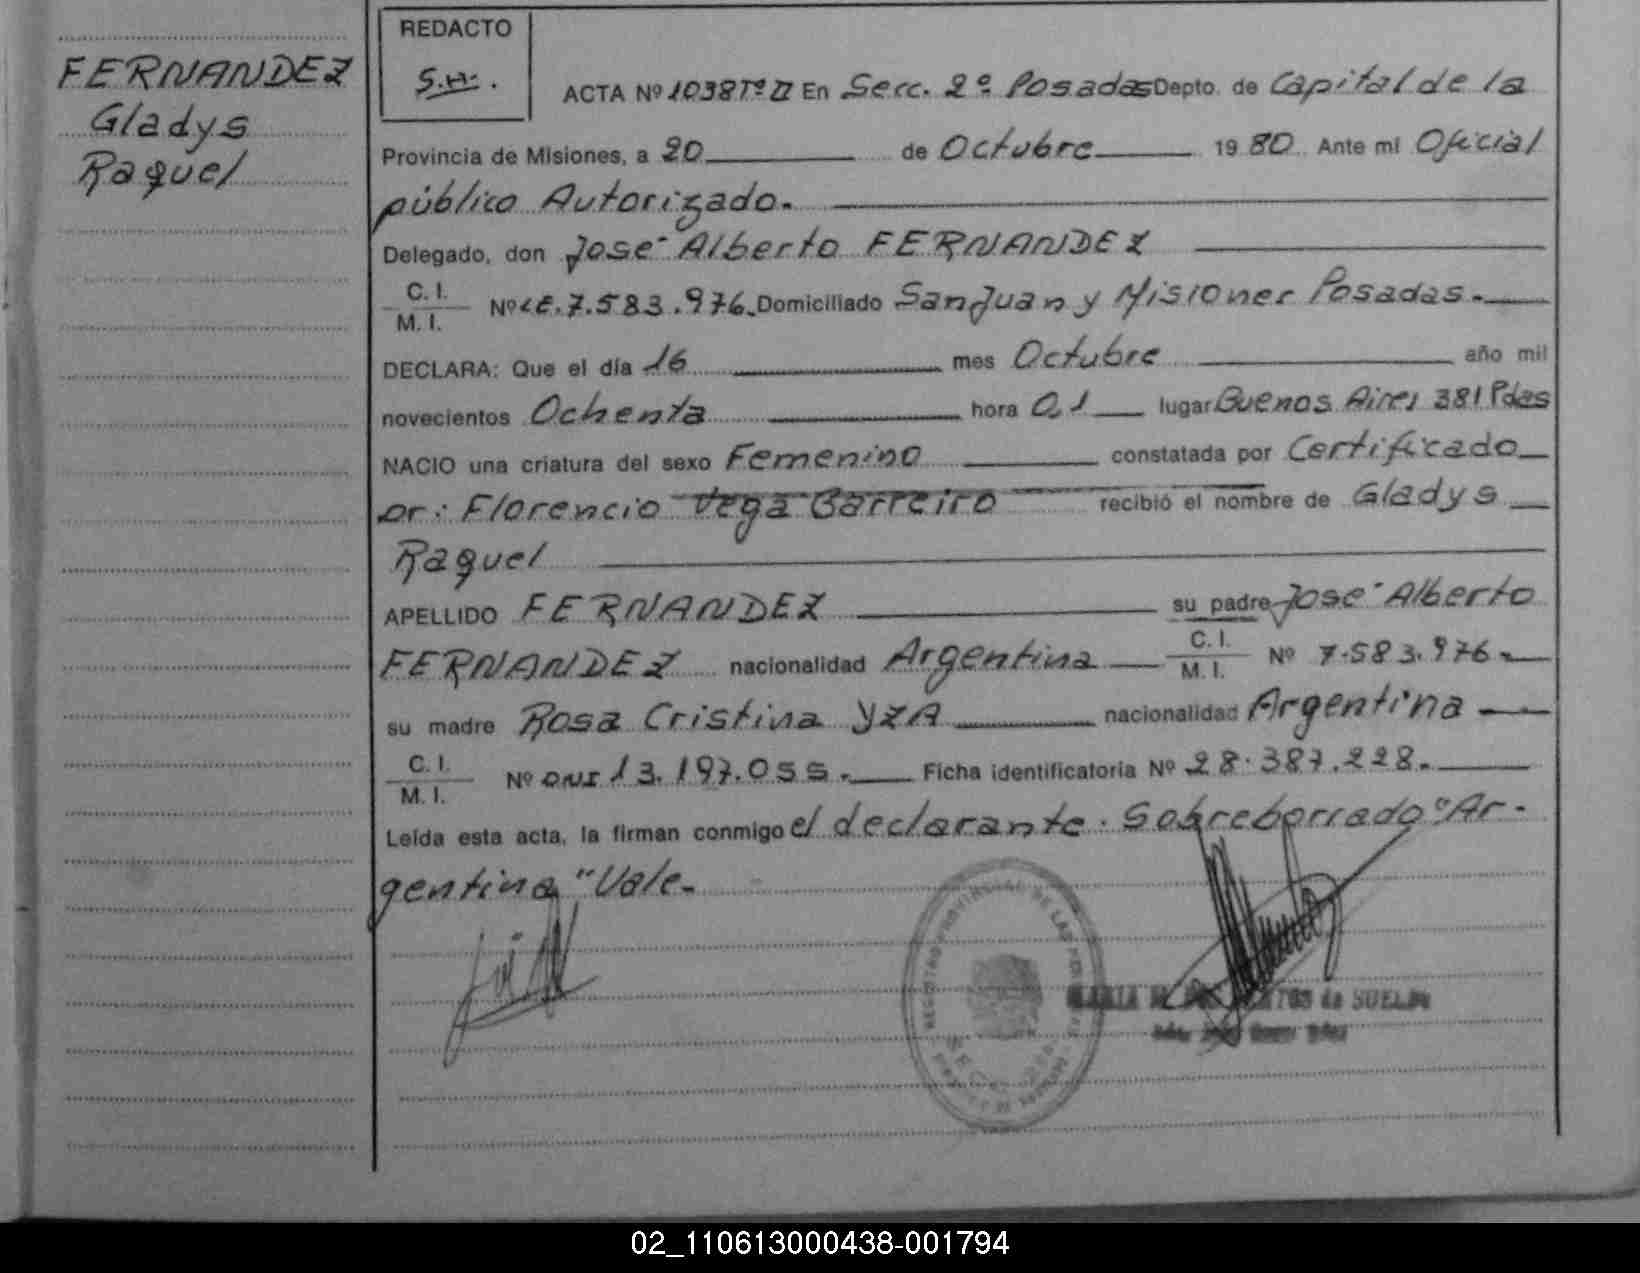 FERNANDEZ
Gladys
Raquel
REDACTO
S.H.
ACTA Nº 1038 Tº II En Secc. 2º Posadas Depto. de Capital de la
Provincia de Misiones, a 20 de Octubre 1980 Ante mi Oficial
público Autorizado.
Delegado, don José Alberto FERNANDEZ
C. I.
M. I. Nº LE. 7.583.976. Domiciliado San Juan y Misiones Posadas.
DECLARA: Que el día 16 mes Octubre año mil
novecientos Ochenta hora 0,1 lugar Buenos Aires 381 Pdas
NACIO una criatura del sexo Femenino constatada por Certificado
Dr: Florencio Vega Barreiro recibió el nombre de Gladys
Raquel
APELLIDO FERNANDEZ su padre José Alberto
FERNANDEZ nacionalidad Argentina C. I. M. I. Nº 7.583.976.
su madre Rosa Cristina YZA nacionalidad Argentina
C. I.
M. I. Nº DNI 13.197.055. Ficha identificatoria Nº 28.387.228.
Leída esta acta, la firman conmigo el declarante. Sobreborrado "Ar-
gentina" Vale.
REGISTRO PROVINCIAL DE LAS PERSONAS
MARIA de SUELDO
02_110613000438-001794